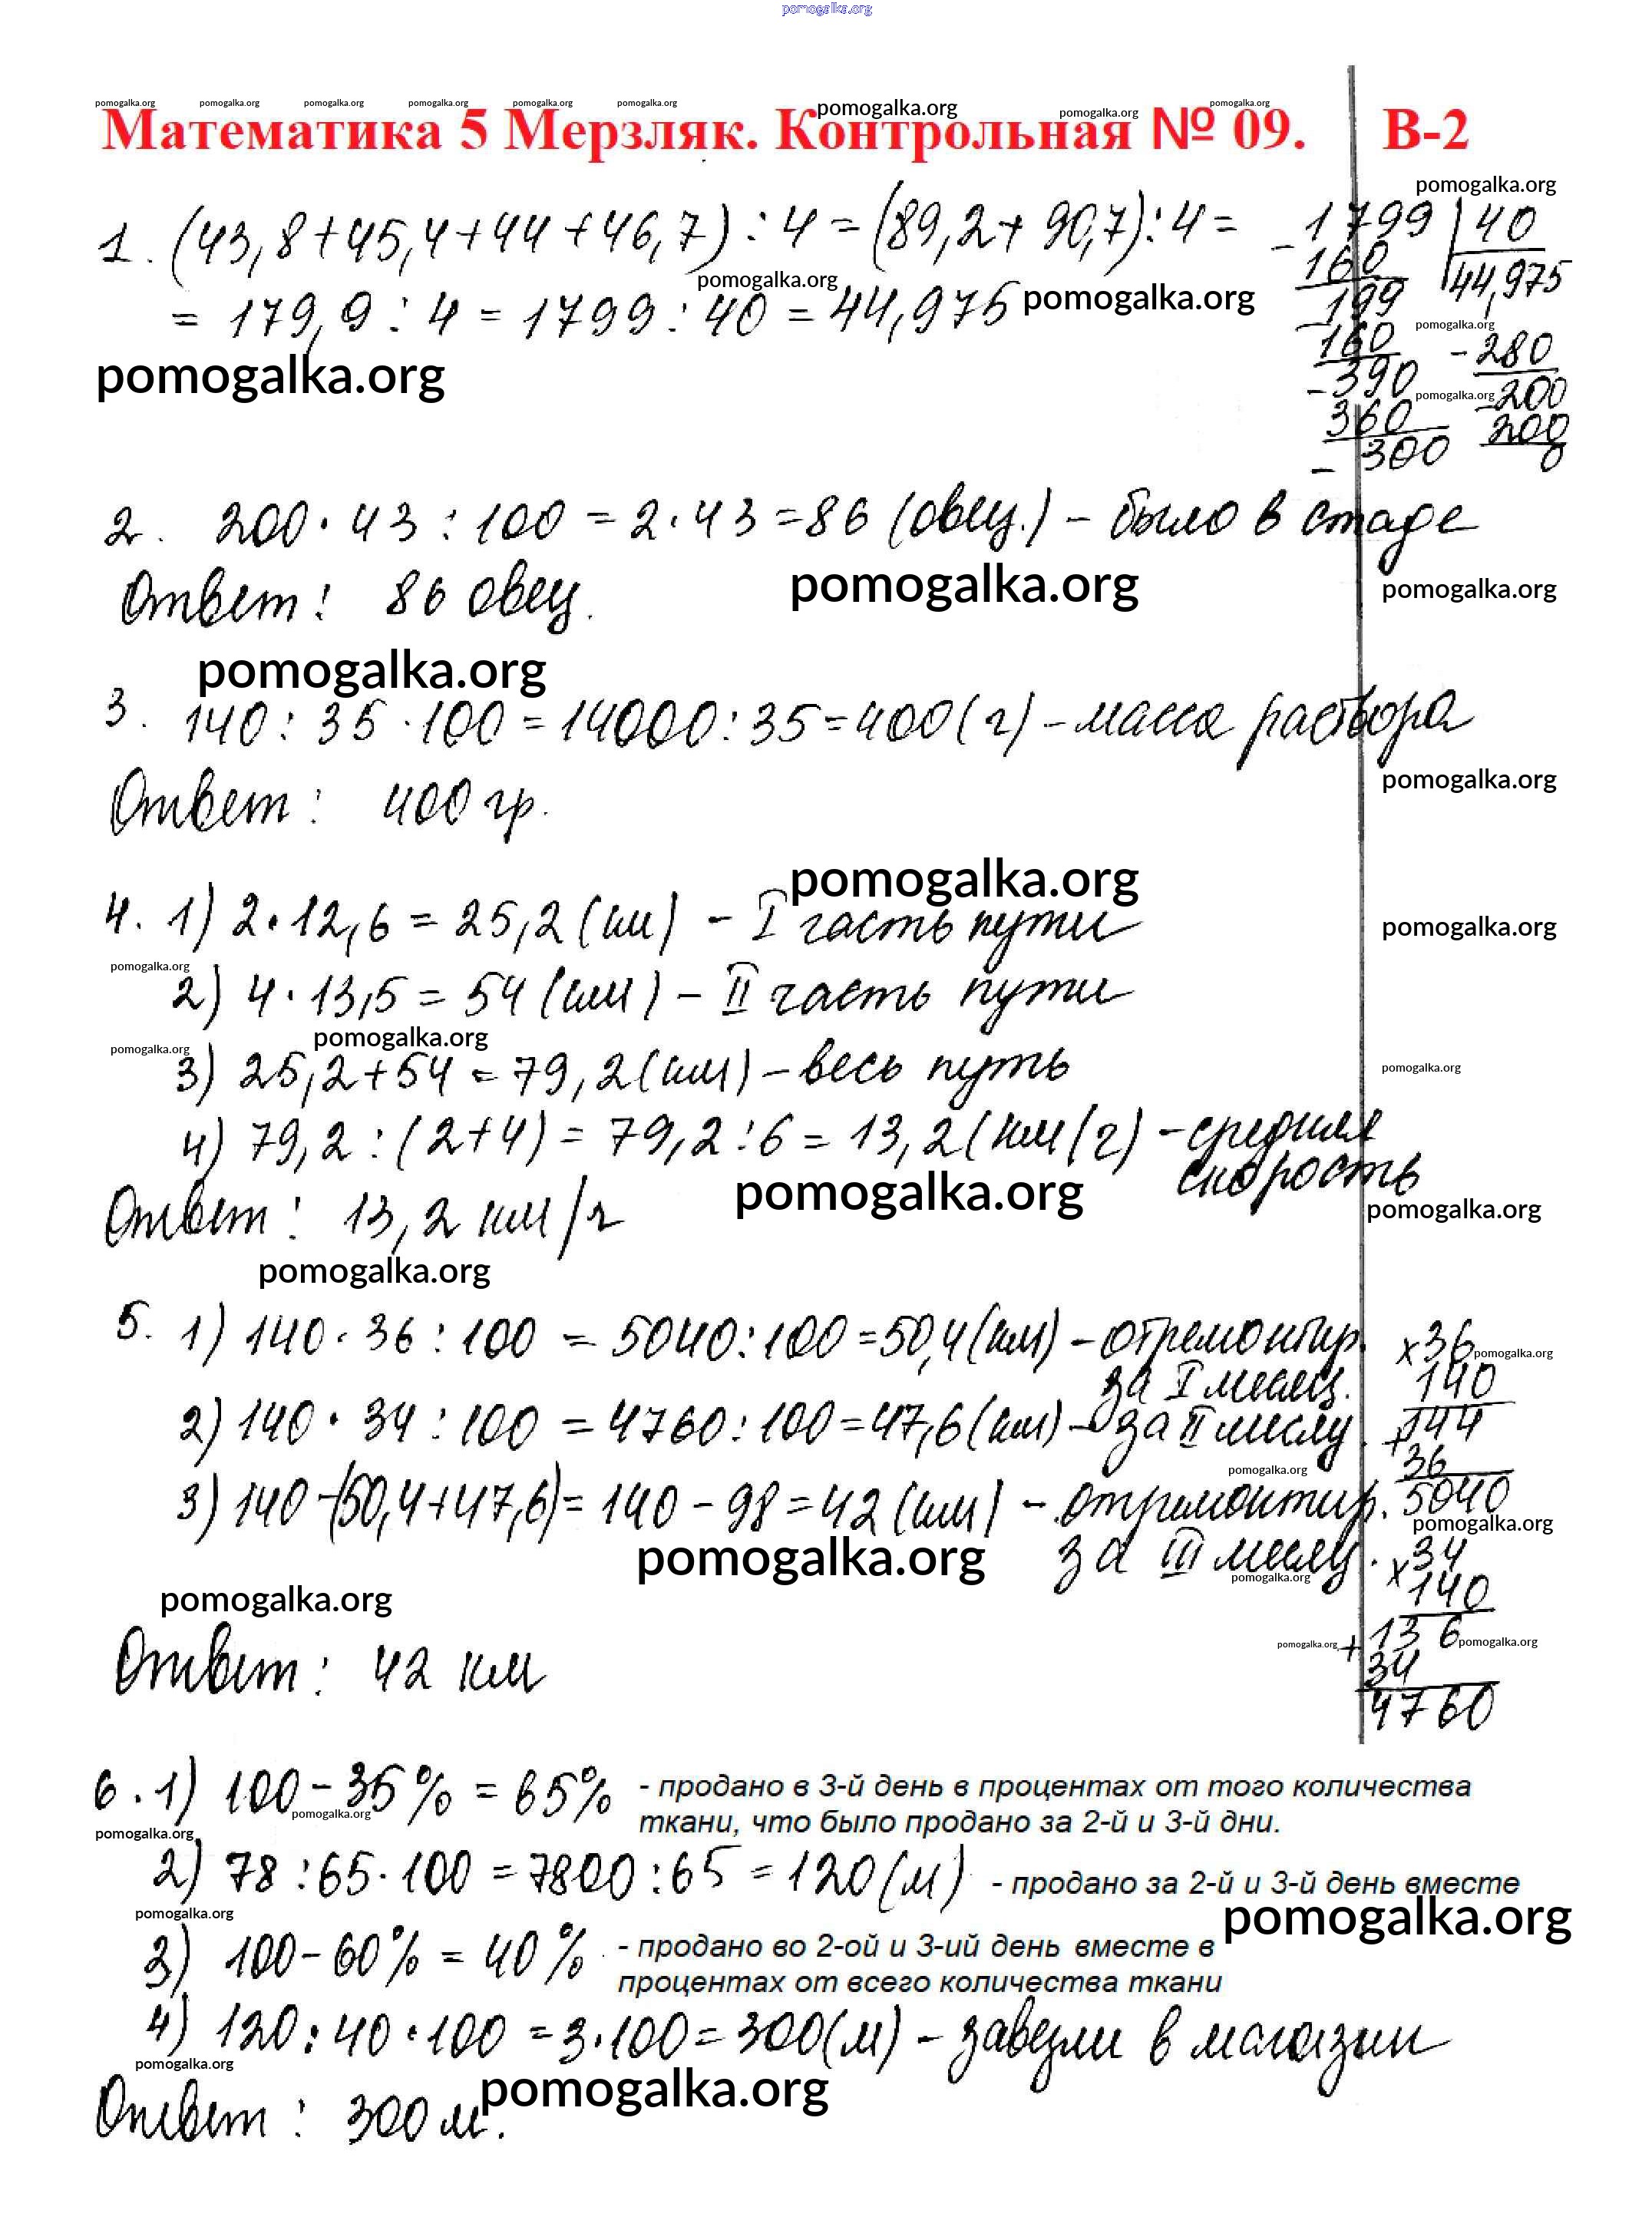 pomogalka.org
pomogalka.org pomogalka.org pomogalka.org pomogalka.org pomogalka.org pomogalka.org pomogalka.org pomogalka.org pomogalka.org
Математика 5 Мерзляк. Контрольная № 09. В-2
pomogalka.org
1. (43,8+45,4+44+46,7) : 4 = (89,2+90,7):4 =
= 179,9 : 4 = 1799 : 40 = 44,975
pomogalka.org pomogalka.org
pomogalka.org
- 1799 | 40
160 44,975
199
pomogalka.org
- 160 - 280
- 390 - 200
pomogalka.org
360 200
- 300 0
2. 200 · 43 : 100 = 2 · 43 = 86 (овец.) - было в стаде
Ответ: 86 овец.
pomogalka.org pomogalka.org
pomogalka.org
3. 140 : 35 · 100 = 14000 : 35 = 400 (г) - масса раствора
pomogalka.org
Ответ: 400 гр.
pomogalka.org
4. 1) 2 · 12,6 = 25,2 (км) - I часть пути
pomogalka.org
pomogalka.org
2) 4 · 13,5 = 54 (км) - II часть пути
pomogalka.org
pomogalka.org
3) 25,2+54 = 79,2 (км) - весь путь
pomogalka.org
4) 79,2 : (2+4) = 79,2 : 6 = 13,2 (км/ч) - средняя
скорость
pomogalka.org pomogalka.org
Ответ: 13,2 км/ч
pomogalka.org
5. 1) 140 · 36 : 100 = 5040 : 100 = 50,4 (км) - отремонтир.
за I месяц.
2) 140 · 34 : 100 = 4760 : 100 = 47,6 (км) - за II месяц.
3) 140 - (50,4+47,6) = 140 - 98 = 42 (км) - отремонтир.
за III месяц.
x 36
pomogalka.org
140
+ 144
36
pomogalka.org
5040
pomogalka.org
x 34
140
pomogalka.org
+ 136
pomogalka.org pomogalka.org
34
4760
pomogalka.org
pomogalka.org
Ответ: 42 км
6. 1) 100 - 35% = 65% - продано в 3-й день в процентах от того количества
ткани, что было продано за 2-й и 3-й дни.
pomogalka.org
pomogalka.org
2) 78 : 65 · 100 = 7800 : 65 = 120 (м) - продано за 2-й и 3-й день вместе
pomogalka.org pomogalka.org
3) 100 - 60% = 40% - продано во 2-ой и 3-ий день вместе в
процентах от всего количества ткани
4) 120 : 40 · 100 = 3 · 100 = 300 (м) - завезли в магазин
pomogalka.org
pomogalka.org
Ответ: 300 м.